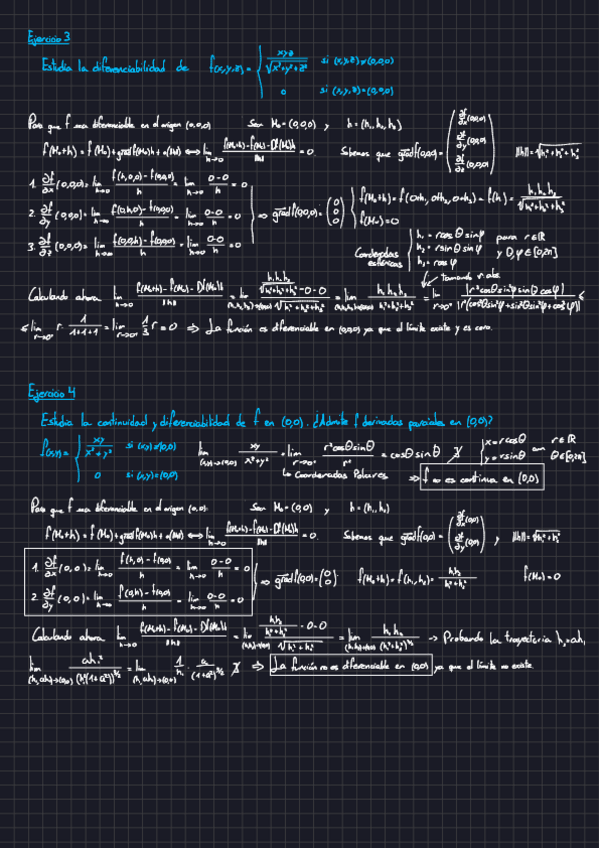 Ejercicio 3
Estudia la diferenciabilidad de f(x,y,z) = { xyz / √(x²+y²+z²) si (x,y,z)≠(0,0,0)
0 si (x,y,z)=(0,0,0)
Para que f sea diferenciable en el origen (0,0,0) Sean M₀=(0,0,0) y h=(h₁,h₂,h₃)
f(M₀+h) = f(M₀) + grad f(M₀)h + o(‖h‖) ⟺ lim h→0 (f(M₀+h) - f(M₀) - Df(M₀)h) / ‖h‖ = 0. Sabemos que grad f(0,0,0) = (∂f/∂x (0,0,0) ∂f/∂y (0,0,0) ∂f/∂z (0,0,0)) ‖h‖=√(h₁²+h₂²+h₃²)
1. ∂f/∂x (0,0,0) = lim h→0 (f(h,0,0) - f(0,0,0)) / h = lim h→0 (0-0)/h = 0
2. ∂f/∂y (0,0,0) = lim h→0 (f(0,h,0) - f(0,0,0)) / h = lim h→0 (0-0)/h = 0 ⇒ grad f(0,0,0) = (0 0 0) { f(M₀+h) = f(0+h₁, 0+h₂, 0+h₃) = f(h) = h₁h₂h₃ / √(h₁²+h₂²+h₃²)
f(M₀)=0
3. ∂f/∂z (0,0,0) = lim h→0 (f(0,0,h) - f(0,0,0)) / h = lim h→0 (0-0)/h = 0
Coordenadas esféricas { h₁ = r cosθ sinφ para r∈ℝ
h₂ = r sinθ sinφ y θ,φ∈[0,2π]
h₃ = r cosφ
tomando valabs
Calculando ahora lim h→0 (f(M₀+h) - f(M₀) - Df(M₀)h) / ‖h‖ = lim (h₁,h₂,h₃)→(0,0,0) (h₁h₂h₃ / √(h₁²+h₂²+h₃²) - 0 - 0) / √(h₁²+h₂²+h₃²) = lim (h₁,h₂,h₃)→(0,0,0) h₁h₂h₃ / (h₁²+h₂²+h₃²) = lim r→0⁺ |r³cosθ sin²φ sinθ cosφ| / |r²(cos²θ sin²φ + sin²θ sin²φ + cos²φ)| ≤
≤ lim r→0⁺ r · 1/(1+1+1) = lim r→0⁺ 1/3 r = 0 ⇒ La función es diferenciable en (0,0,0) ya que el límite existe y es cero.
Ejercicio 4
Estudia la continuidad y diferenciabilidad de f en (0,0). ¿Admite f derivadas parciales en (0,0)?
f(x,y) = { xy / (x²+y²) si (x,y)≠(0,0) lim (x,y)→(0,0) xy / (x²+y²) = lim r→0⁺ r²cosθsinθ / r² = cosθsinθ ∄ { x=rcosθ con r∈ℝ
0 si (x,y)=(0,0) y=rsinθ θ∈[0,2π]
↳ Coordenadas Polares ⇒ f no es continua en (0,0)
Para que f sea diferenciable en el origen (0,0). Sean M₀=(0,0) y h=(h₁,h₂)
f(M₀+h) = f(M₀) + grad f(M₀)h + o(‖h‖) ⟺ lim h→0 (f(M₀+h) - f(M₀) - Df(M₀)h) / ‖h‖ = 0. Sabemos que grad f(0,0) = (∂f/∂x (0,0) ∂f/∂y (0,0)), ‖h‖=√(h₁²+h₂²)
1. ∂f/∂x (0,0) = lim h→0 (f(h,0) - f(0,0)) / h = lim h→0 (0-0)/h = 0
⇒ grad f(0,0) = (0 0) f(M₀+h) = f(h₁,h₂) = h₁h₂ / (h₁²+h₂²) f(M₀)=0
2. ∂f/∂y (0,0) = lim h→0 (f(0,h) - f(0,0)) / h = lim h→0 (0-0)/h = 0
Calculando ahora lim h→0 (f(M₀+h) - f(M₀) - Df(M₀)h) / ‖h‖ = lim (h₁,h₂)→(0,0) (h₁h₂ / (h₁²+h₂²) - 0-0) / √(h₁²+h₂²) = lim (h₁,h₂)→(0,0) h₁h₂ / (h₁²+h₂²)^(3/2) → Probando la trayectoria h₂=ah₁
lim (h₁,ah₁)→(0,0) ah₁² / (h₁²(1+a²))^(3/2) = lim (h₁,ah₁)→(0,0) 1/h₁ · a / (1+a²)^(3/2) ∄ ⇒ La función no es diferenciable en (0,0) ya que el límite no existe.